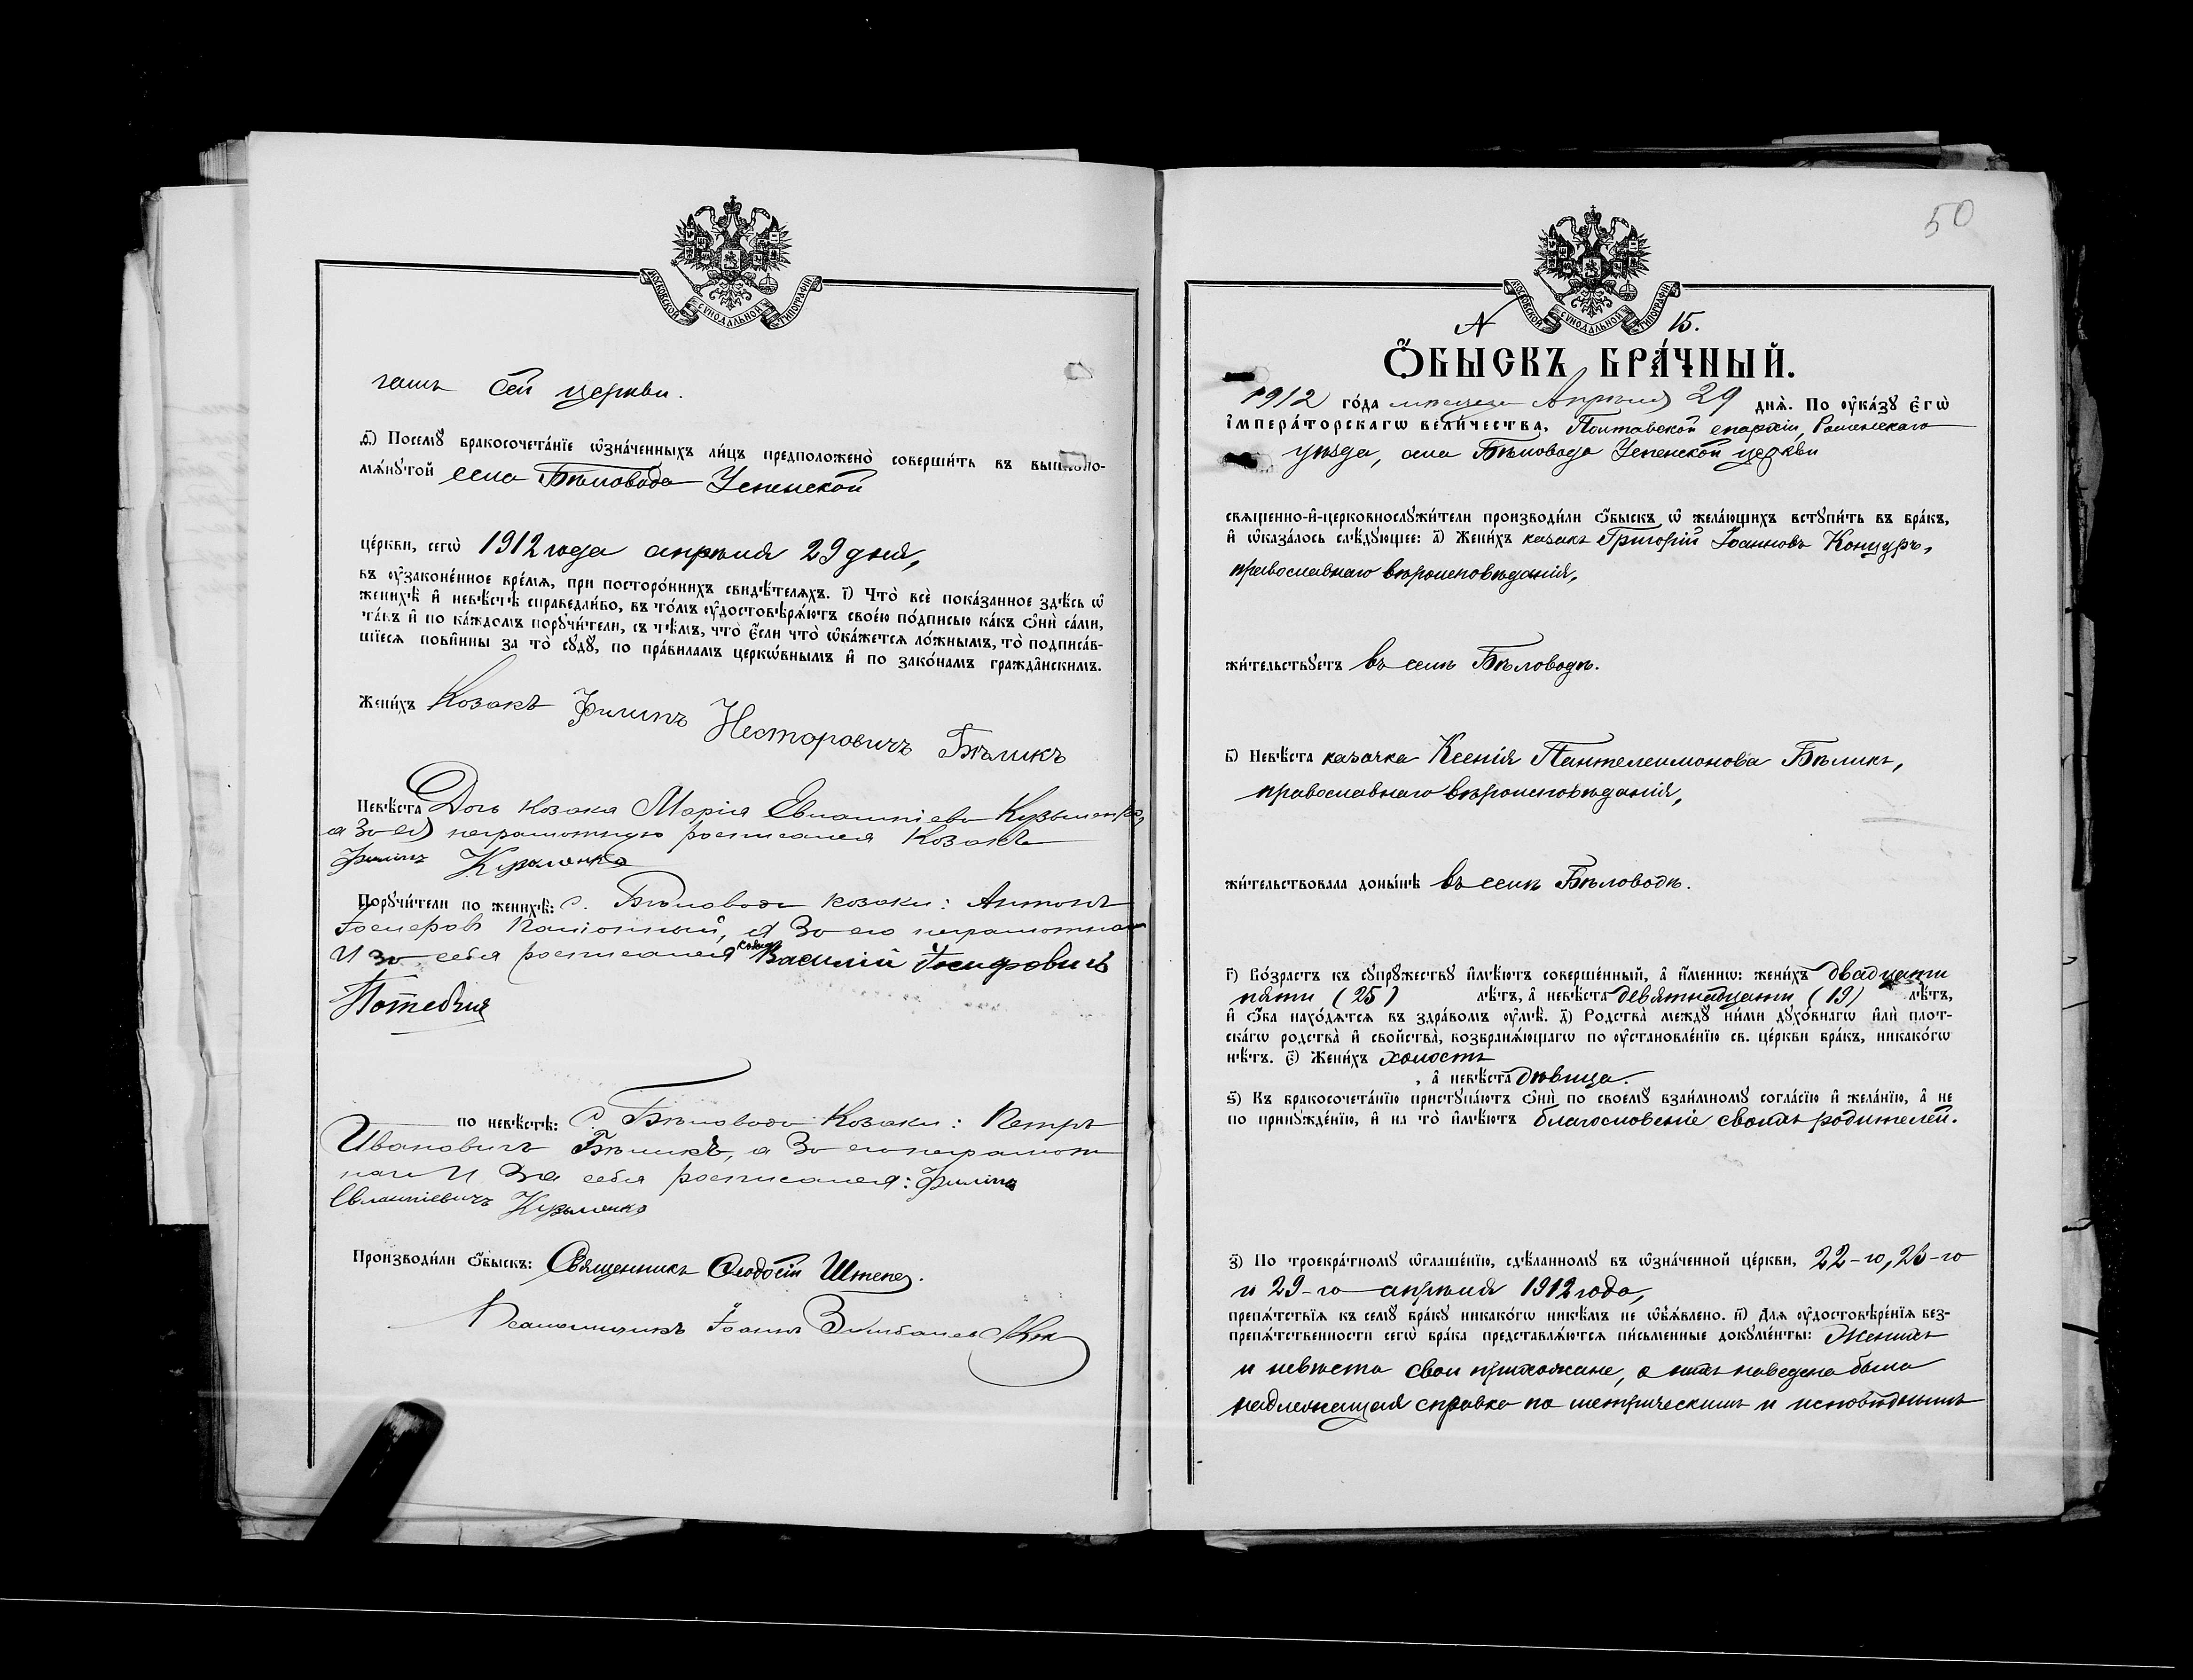 МОСКОВСКОЙ СѴНОДАЛЬНОЙ ТИПОГРАФІИ
гамъ сей церкви.
д҃) Посемꙋ̀ бракосочета́нїе ѡ҆зна́ченныхъ ли́цъ предположено̀ соверши́ть въ вышепо-
мѧ́нꙋтой села Бѣловода Успенской
це́ркви, сегѡ̀ 1912 года апрѣля 29 дня,
въ ᲂу҆законе́нное вре́мѧ, при посторо́ннихъ свидѣ́телѧхъ. і҃) Что̀ всѐ пока́занное здѣ́сь ѡ҆
женихѣ̀ и҆ невѣ́стѣ справедли́во, въ то́мъ ᲂу҆достовѣрѧ́ютъ свое́ю по́дписью ка́къ ѻ҆нѝ са́ми,
та́къ и҆ по ка́ждомъ порꙋчи́тели, съ тѣ́мъ, что̀ є҆́сли что̀ ѡ҆ка́жетсѧ ло́жнымъ, то̀ подписа́в-
шїесѧ пови́нны за то̀ сꙋдꙋ̀, по пра́виламъ церкѡ́внымъ и҆ по зако́намъ гражда́нскимъ.
Жени́хъ Козакъ Филипъ Несторовичъ Бѣликъ
Невѣ́ста Дочь козака Марія Евлампіева Кузьменко,
а за ея неграмотную росписался Козакъ
Филипъ Кузменко
Порꙋчи́тели по женихѣ̀: с. Бѣловода козаки: Антонъ
Іосифовъ, а за его неграмотнаго
и за себя росписался козакъ Василій Іосифовичъ
по невѣ́стѣ: с. Бѣловода Козаки: Петръ
Ивановичъ Бѣликъ, а за его неграмот
наго и за себя росписался: Филипъ
Евлампіевичъ Кузьменко
Производи́ли ѻ҆́быскъ: Священникъ Ѳеодосій Штепа.
Псаломщикъ Іоаннъ
50
МОСКОВСКОЙ СѴНОДАЛЬНОЙ ТИПОГРАФІИ
№ 15.
Ѻ҆́БЫСКЪ БРА́ЧНЫЙ.
1912 го́да мѣсяца Апрѣля 29 днѧ̀. По ᲂу҆ка́зꙋ є҆гѡ̀
і҆мпера́торскагѡ вели́чества, Полтавской епархіи, Роменскаго
уѣзда, села Бѣловода Успенской церкви
свѧщенно-и҆-церковнослꙋжи́тели производи́ли ѻ҆́быскъ ѡ҆ жела́ющихъ встꙋпи́ть въ бра́къ,
и҆ ѡ҆каза́лось слѣ́дꙋющее: а҃) Жени́хъ казакъ Григорій Іоанновъ Концуръ,
православнаго вѣроисповѣданія,
жи́тельствꙋетъ въ селѣ Бѣловодѣ.
в҃) Невѣ́ста казачка Ксенія Пантелеимонова Бѣликъ,
православнаго вѣроисповѣданія,
жи́тельствовала доны́нѣ въ селѣ Бѣловодѣ.
г҃) Во́зрастъ къ сꙋпрꙋ́жествꙋ и҆мѣ́ютъ соверше́нный, а҆ и҆́меннѡ: жени́хъ двадцати
пяти (25) лѣ́тъ, а҆ невѣ́ста девятнадцати (19) лѣ́тъ,
и҆ ѻ҆́ба нахо́дѧтсѧ въ здра́вомъ ᲂу҆мѣ̀. д҃) Родства̀ междꙋ̀ ни́ми дꙋхо́внагѡ и҆лѝ плот-
ска́гѡ родства̀ и҆ свойства̀, возбранѧ́ющагѡ по ᲂу҆становле́нїю св. це́ркви бра́къ, никако́гѡ
нѣ́тъ. є҃) Жени́хъ холостъ
, а҆ невѣ́ста дѣвица.
ѕ҃) Къ бракосочета́нїю пристꙋпа́ютъ ѻ҆нѝ по своемꙋ̀ взаи́мномꙋ согла́сїю и҆ жела́нїю, а҆ не
по принꙋжде́нїю, и҆ на то̀ и҆мѣ́ютъ благословеніе своихъ родителей.
з҃) По троекра́тномꙋ ѡ҆глаше́нїю, сдѣ́ланномꙋ въ ѡ҆зна́ченной це́ркви, 22-го, 23-го
и 29-го апрѣля 1912 года,
препѧ́тствїѧ къ семꙋ̀ бра́кꙋ никако́гѡ никѣ́мъ не ѡ҆б̾ѧ́влено. и҃) Длѧ ᲂу҆достовѣре́нїѧ без-
препѧ́тственности сегѡ̀ бра́ка представлѧ́ются пи́сьменные докꙋме́нты: Женихъ
и невѣста свои прихожане, о нихъ наведена была
надлежащая справка по метрическимъ и исповѣднымъ